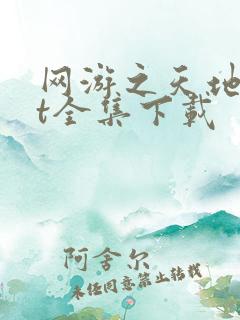 网游之天地
t全集下载
阿舍尔
未经同意禁止转载